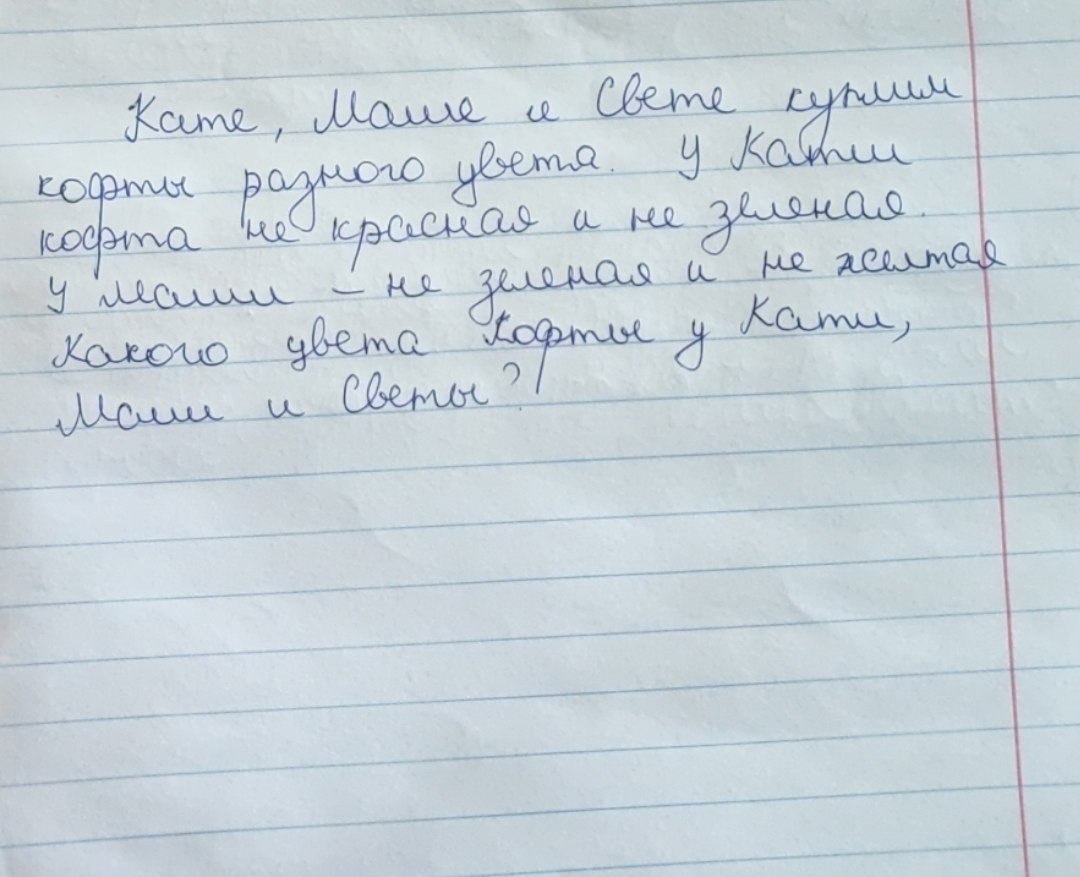 Кате, Маше и Свете купили
кофты разного цвета. У Кати
кофта не красная и не зеленая.
У Маши – не зеленая и не желтая
Какого цвета кофты у Кати,
Маши и Светы?